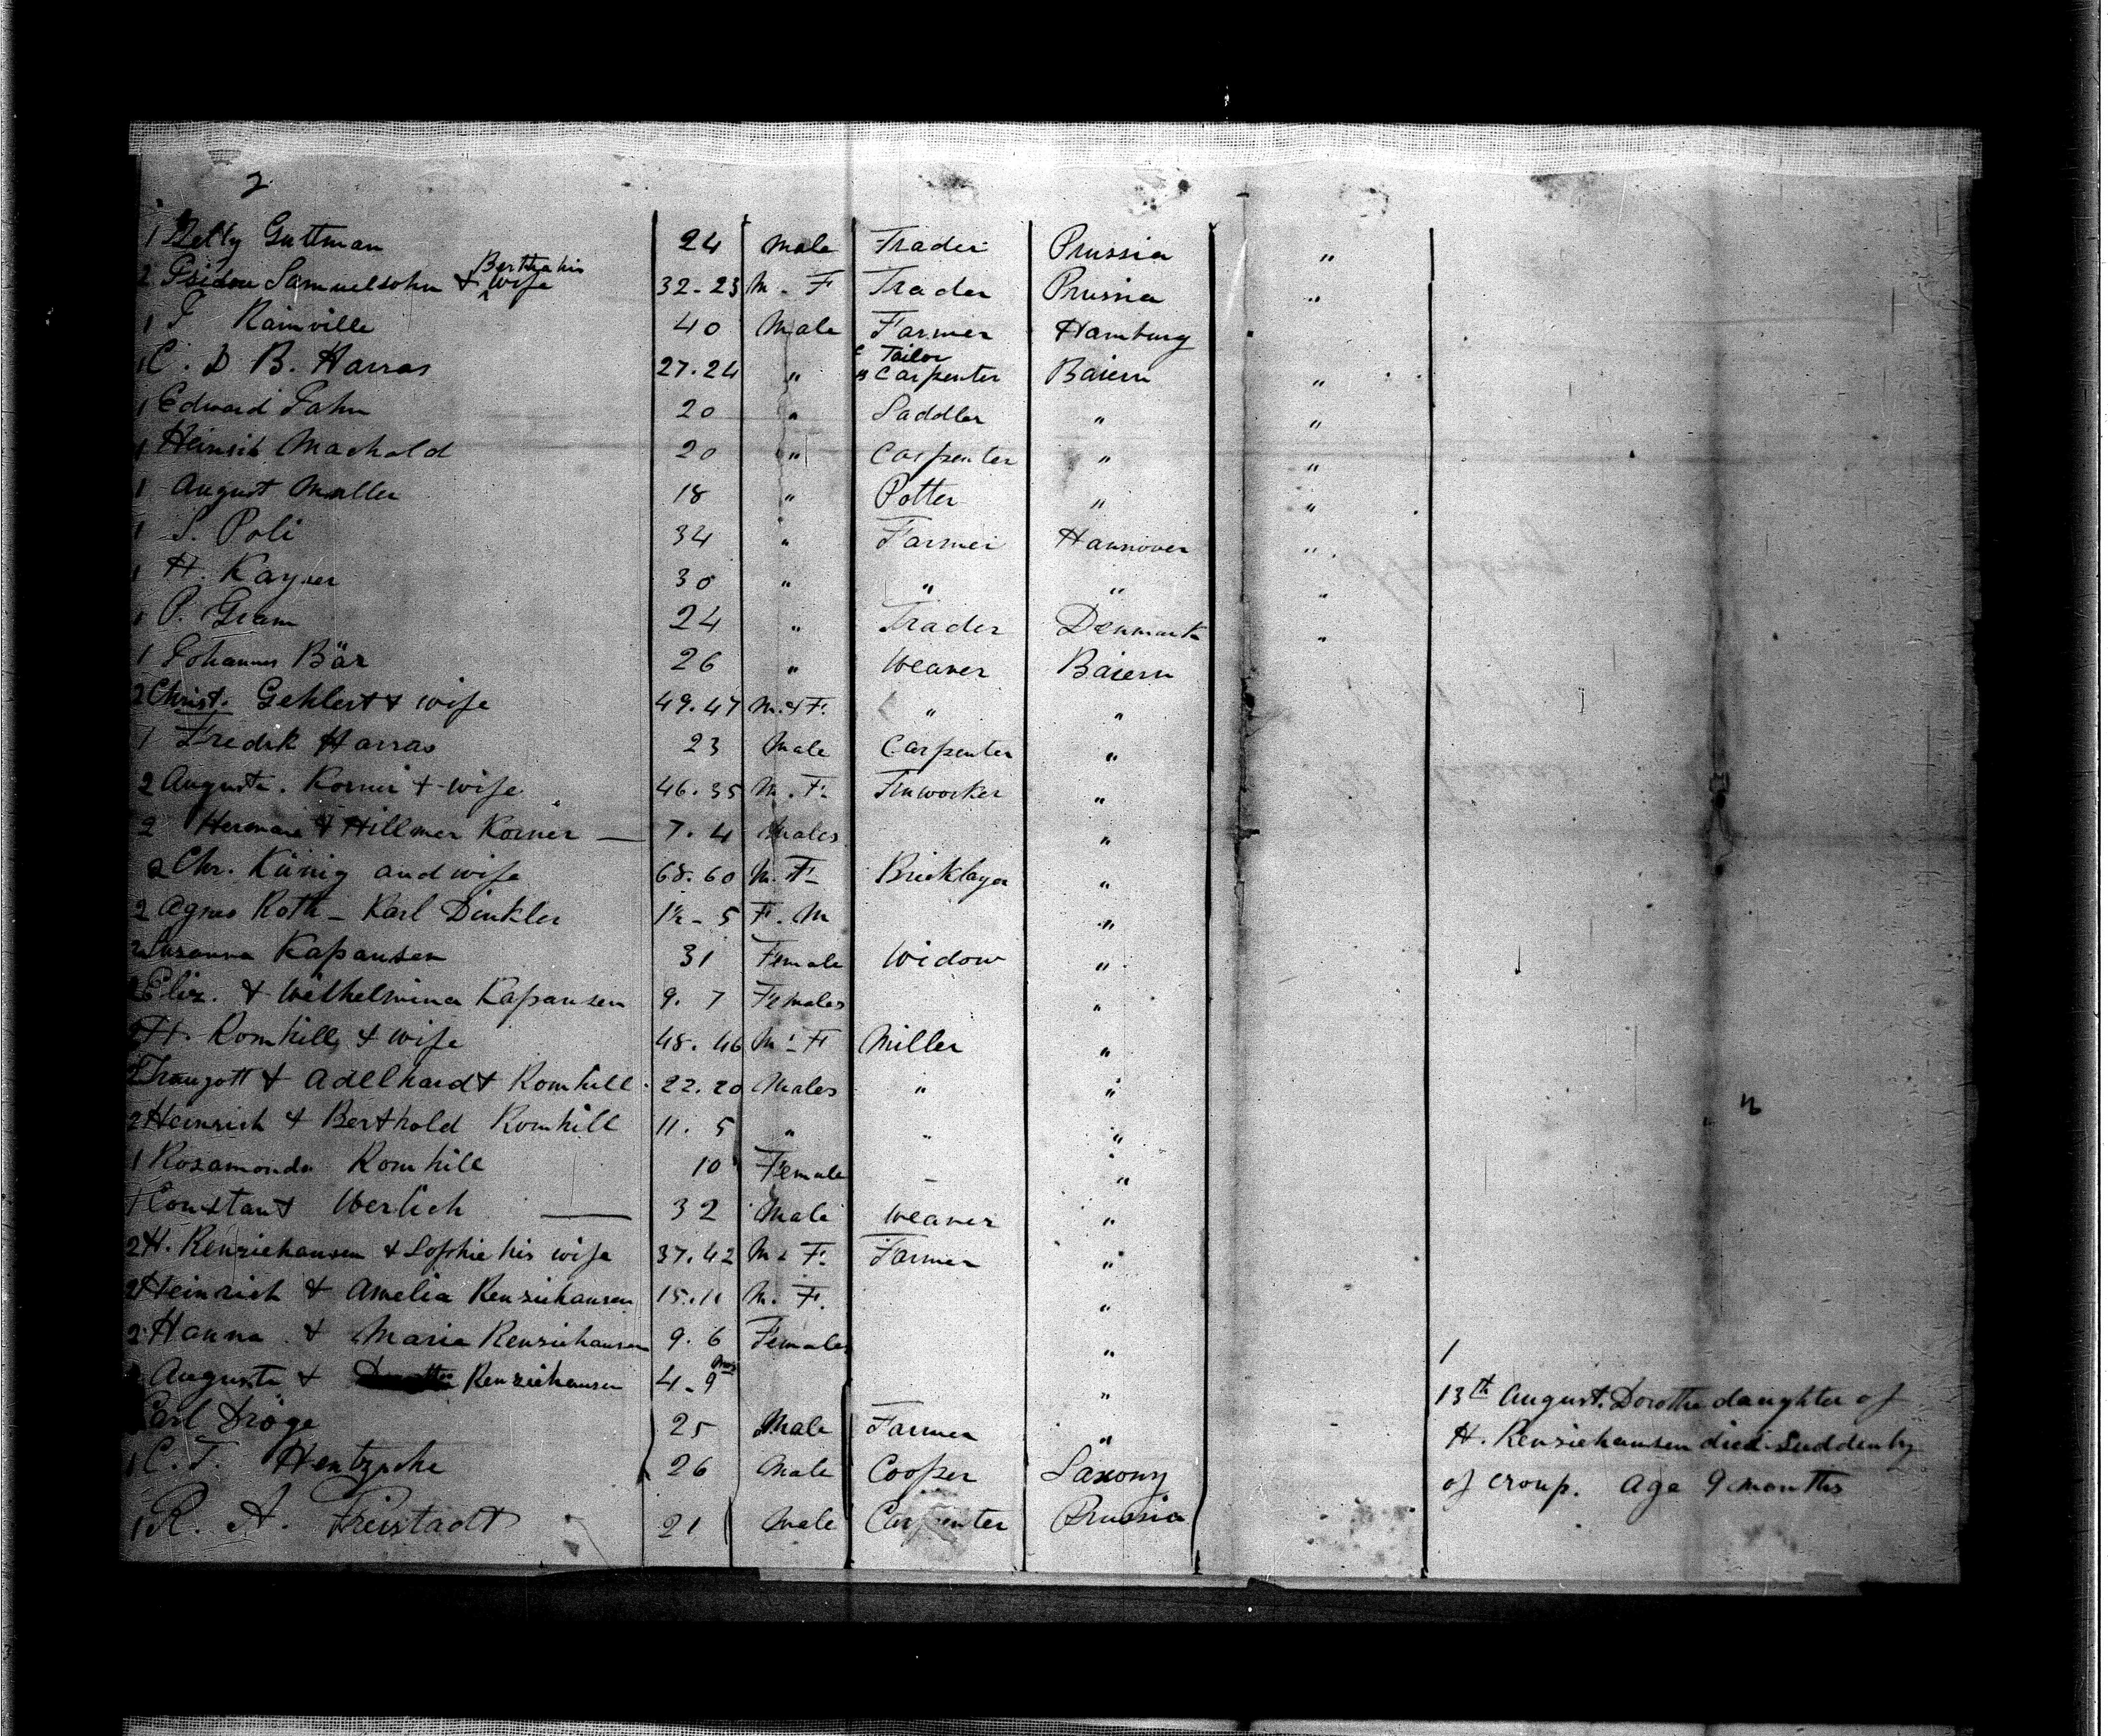 2
1 Betty Guttman 24 Male Trader Prussia "
Bertha his
2 Isidor Samuelsohn & wife 32-23 M-F Trader Prussia "
1 J Rainville 40 Male Farmer Hamburg
C Tailor
1 C. & B. Harras 27.24 " B Carpenter Baiern "
1 Edward Jahn 20 " Saddler " "
1 Heinrih Machold 20 " Carpenter " "
1 August Muller 18 " Potter " "
1 S. Poli 34 " Farmer Hannover "
1 H. Kayser 30 " " " "
1 P. Gram 24 " Trader Denmark "
1 Johannes Bär 26 " Weaver Baiern
2 Christ. Gehlert & wife 49.47 M.&F. " "
1 Fredrk Harras 23 Male Carpenter "
2 August. Korner & wife 46.35 M.F. Tinworker "
2 Hermann & Hillmer Korner — 7.4 Males "
2 Chr. König and wife 68.60 M.F- Bricklayer "
2 Agnes Roth - Karl Dinkler 1½-5 F.M "
2 Susanna Kapansen 31 Female Widow "
2 Eliz. & Wilhelmina Kapansen 9.7 Females "
2 H. Romhill & wife 48.46 M-F Miller "
2 Traugott & Adelhardt Romhill. 22.20 Males " "
2 Heinrich & Berthold Romhill 11.5 " " "
1 Rosamonda Romhill 10 Female - "
1 Constant Werlich — 32 Male Weaver "
2 H. Renziehausen & Sophie his wife 37.42 M & F. Farmer "
2 Heinrich & Amelia Renziehausen 15.11 M.F. "
2 Hanna & Maria Renziehausen 9.6 Females " 1
Augusta & Renziehausen 4-9 mos "
13th August. Dorothe daughter of
Carl Dröge 25 Male Farmer "
H. Renziehausen died Suddenly
1 C. T. Hentzsche 26 Male Cooper Saxony
of croup. Age 9 months
1 R. A. Freistadt 21 Male Carpenter Prussia